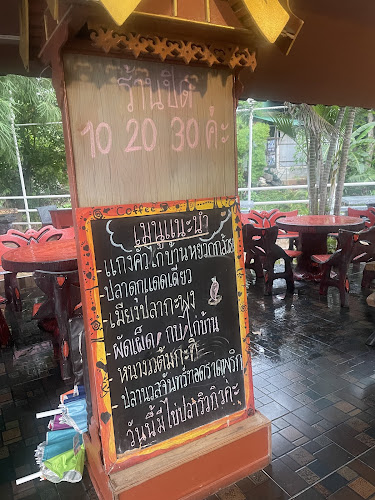 ร้านปิด
10 20 30 ค่ะ
Coffee
เมนูแนะนำ
- แกงคั่วไก่บ้านหยวกกล้วย
- ปลาดุกแดดเดียว
- เมี่ยงปลากะพง
- ผัดเผ็ด กบ/ไก่บ้าน
หนางบต้มกะทิ
- ปลานวลจันทร์ทอดราดพริก
วันนี้มีไข่ปลาริวกิวค่ะ